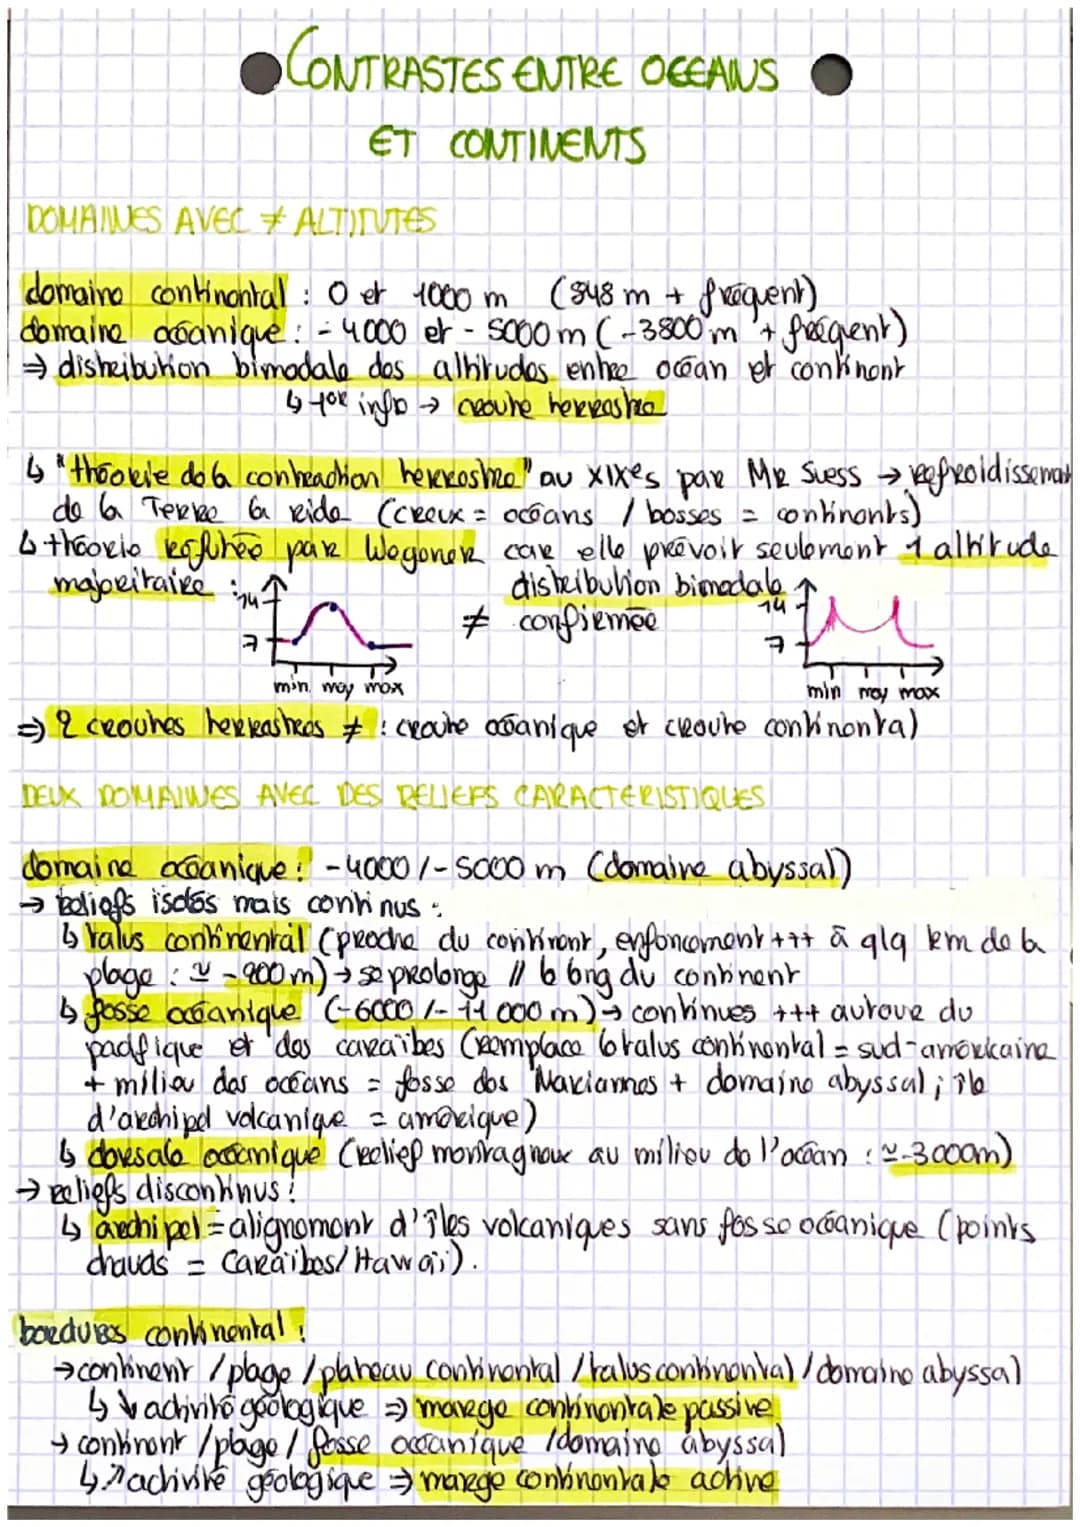 CONTRASTES ENTRE OCEANS
ET CONTINENTS
DOMAINES AVEC ≠ ALTITUTES
domaine continental : 0 et 1000 m (848 m + fréquent)
domaine océanique : - 4000 et - 5000 m (-3800 m + fréquent)
⇒ distribution bimodale des altitudes entre océan et continent
↳ 1ère info → croute terrestre
↳ "théorie de la contraction terrestre" au XIXes par Mr Suess → refroidissement
de la Terre la ride (creux = océans / bosses = continents)
↳ théorie réfutée par Wegener car elle prévoit seulement 1 altitude
majoritaire : ≠ distribution bimodale
confirmée
14
7
min moy max
14
7
min moy max
⇒ 2 croutes terrestres ≠ : croute océanique et croute continental
DEUX DOMAINES AVEC DES RELIEFS CARACTERISTIQUES
domaine océanique : -4000 / -5000 m (domaine abyssal)
→ reliefs isolés mais continus :
↳ talus continental (proche du continent, enfoncement +++ à qlq km de la
plage : ≃ -200 m) → se prolonge // le long du continent
↳ fosse océanique (-6000 / -11 000 m) → continues +++ autour du
pacifique et des caraïbes (remplace le talus continental = sud-américaine
+ milieu des océans = fosse des Mariannes + domaine abyssal ; île
d'archipel volcanique = amérique)
↳ dorsale océanique (relief montagneux au milieu de l'océan : ≃ -3000m)
→ reliefs discontinus :
↳ archipel = alignement d'îles volcaniques sans fosse océanique (points
chauds = Caraïbes/Hawaï).
bordures continental :
→ continent / plage / plateau continental / talus continental / domaine abyssal
↳ ↘ activité géologique ⇒ marge continentale passive
→ continent / plage / fosse océanique / domaine abyssal
↳ ↗ activité géologique ⇒ marge continentale active